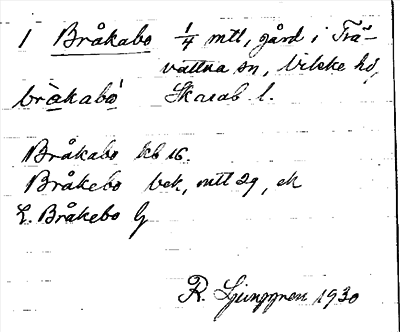 1 Bråkabo 1/4 mtl, gård i Trä-
vattna sn, Vilske hd,
brå̀kabó Skarab. l.
Bråkabo kb 16.
Bråkebo bek, mtl 29, ek
L. Bråkebo G
R. Ljunggren 1930